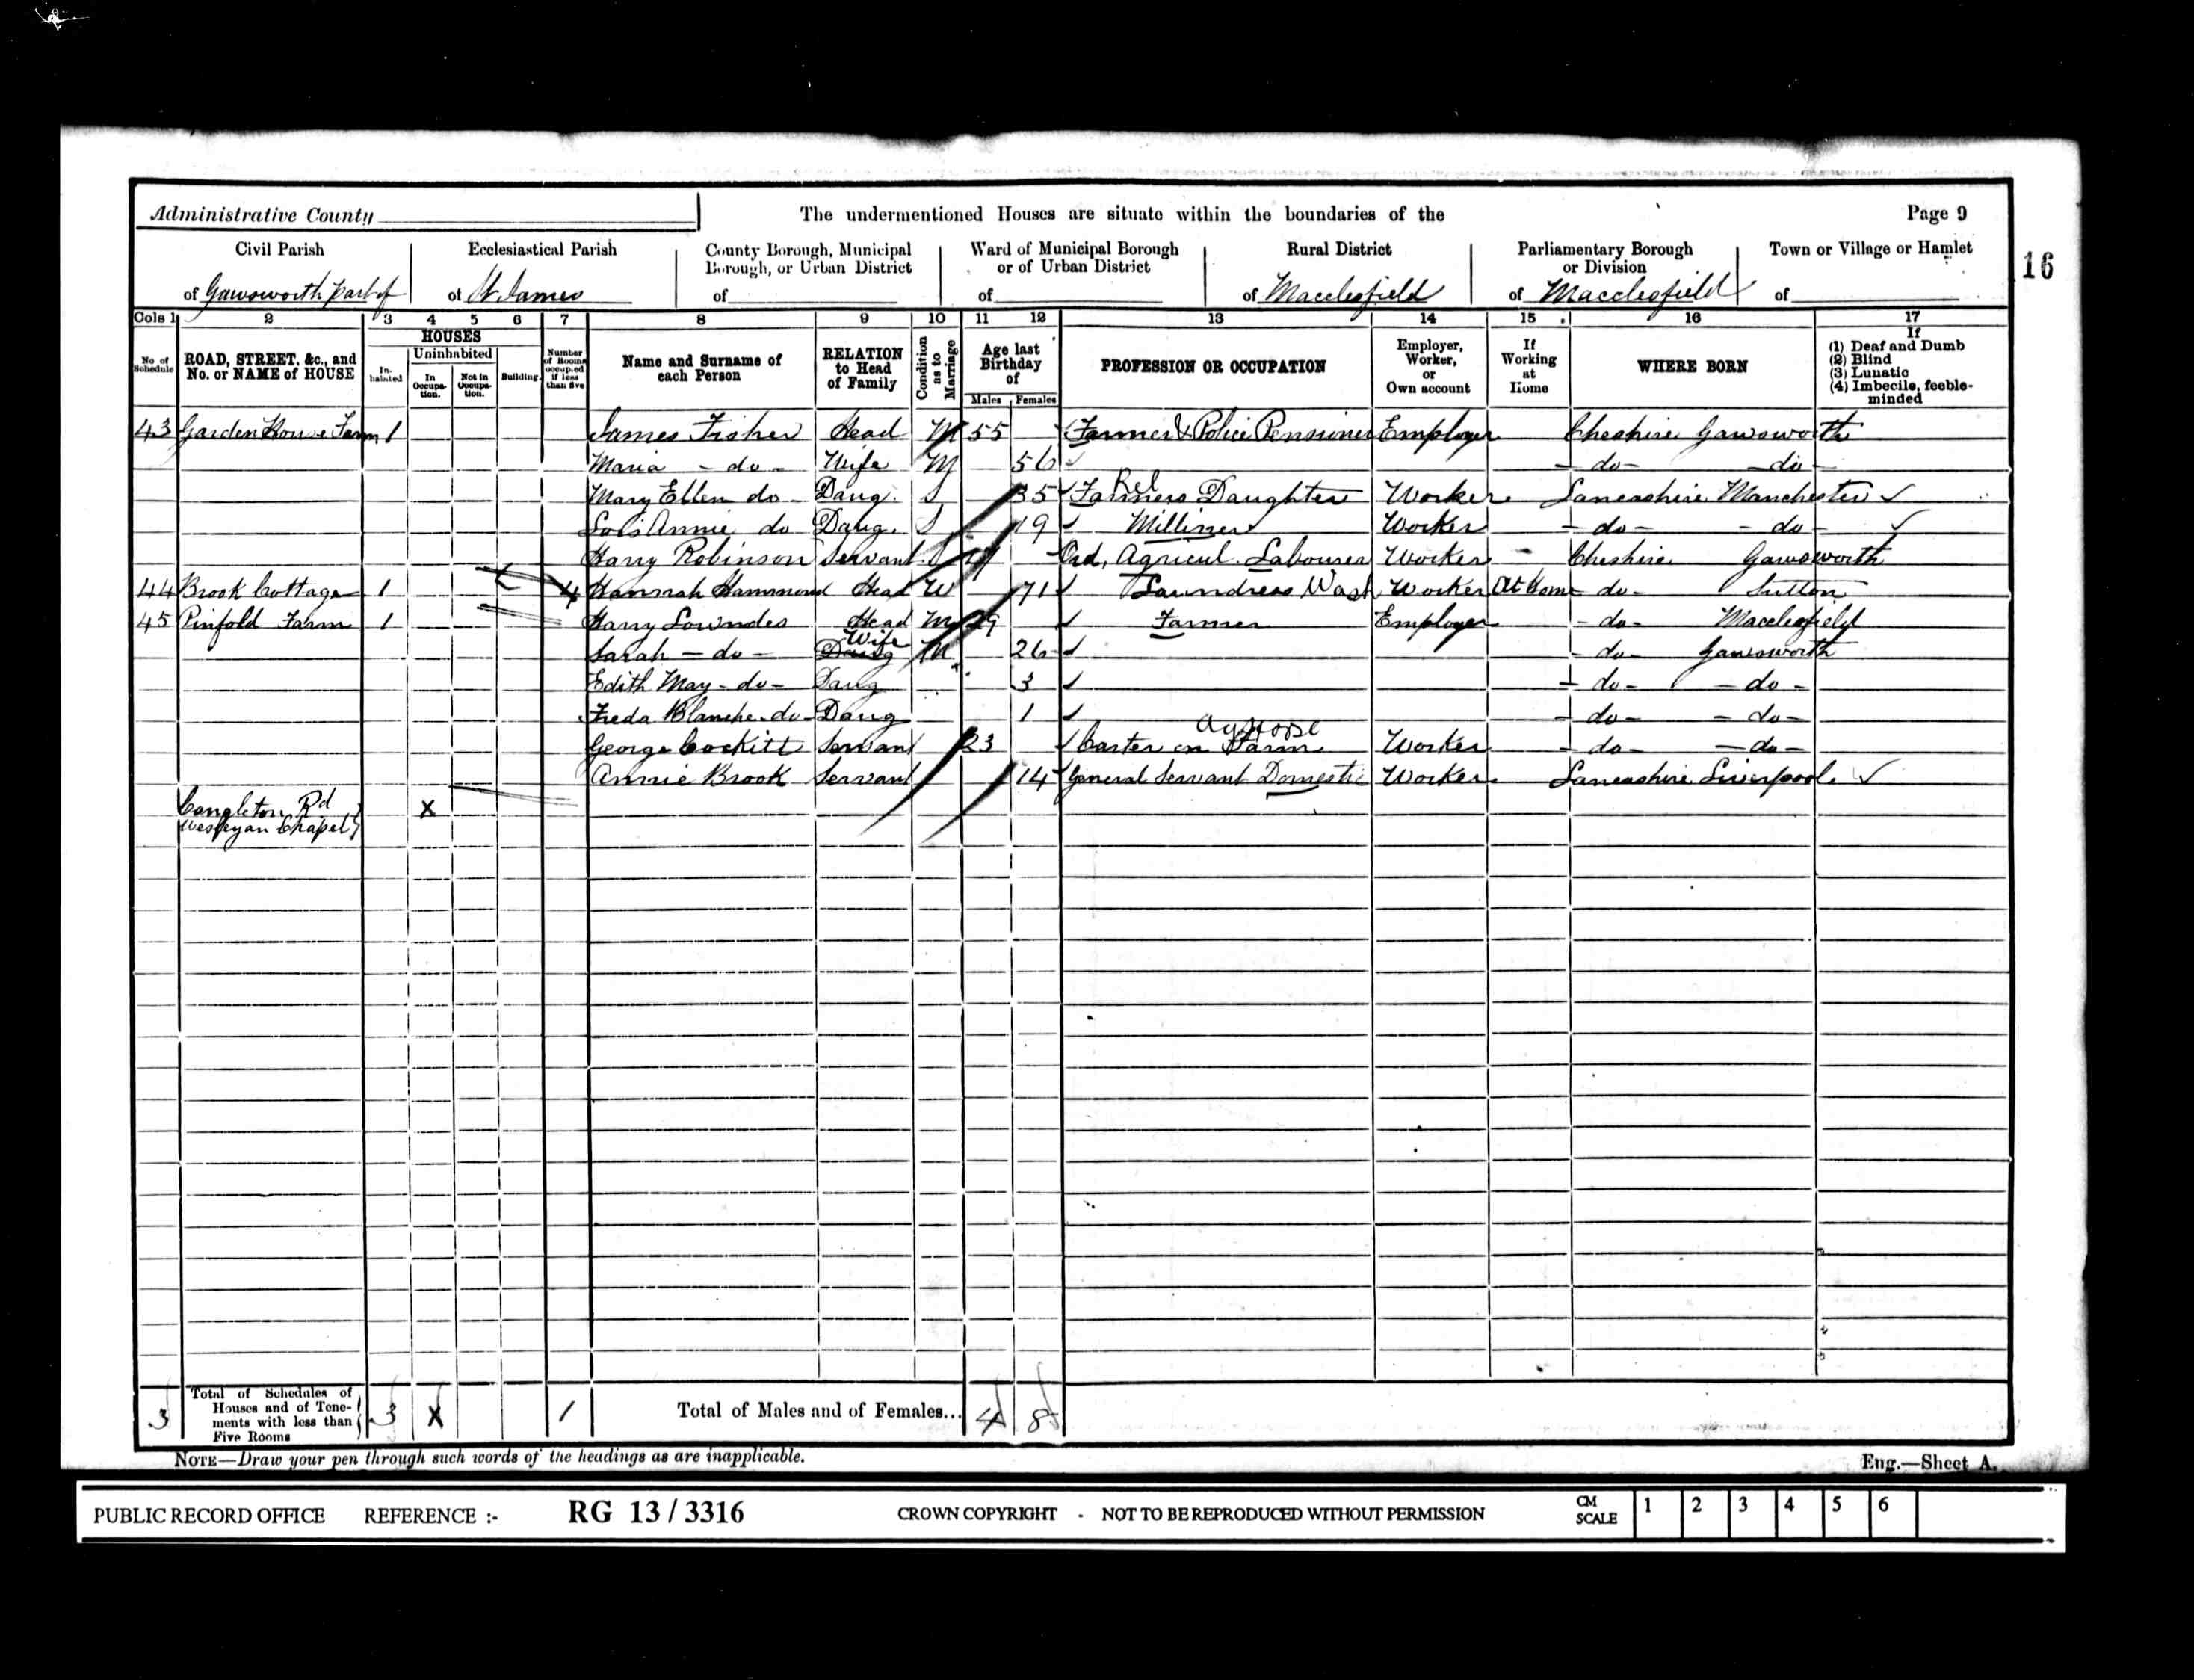 Administrative County The undermentioned Houses are situate within the boundaries of the Page 9
16
Civil Parish Ecclesiastical Parish County Borough, Municipal Borough, or Urban District Ward of Municipal Borough or of Urban District Rural District Parliamentary Borough or Division Town or Village or Hamlet
of Gawsworth part of of St James of of of Macclesfield of Macclesfield of
Cols 1 2 3 4 5 6 7 8 9 10 11 12 13 14 15 16 17
No of Schedule ROAD, STREET, &c., and No. or NAME of HOUSE HOUSES Inhabited Uninhabited In Occupation. Not in Occupation. Building. Number of Rooms occupied if less than five Name and Surname of each Person RELATION to Head of Family Condition as to Marriage Age last Birthday of Males Females PROFESSION OR OCCUPATION Employer, Worker, or Own account If Working at Home WHERE BORN If (1) Deaf and Dumb (2) Blind (3) Lunatic (4) Imbecile, feeble-minded
43 Garden House Farm 1 James Fisher Head M 55 Farmer & Police Pensioner Employer Cheshire Gawsworth
Maria - do - Wife M 56 - do - - do -
Mary Ellen do - Daug. S Rel Farmers Daughter Worker Lancashire Manchester
Lois Annie do Daug. S 19 Milliner Worker - do - - do -
Harry Robinson Servant Ord, Agricul. Labourer Worker Cheshire Gawsworth
44 Brook Cottage 1 4 Hannah Hammond Head W 71 Laundress Wash Worker At Home do - Sutton
45 Pinfold Farm 1 Harry Lowndes Head M 29 Farmer Employer - do - Macclesfield
Sarah - do - Wife Daug M 26 - do - Gawsworth
Edith May - do - Daug 3 - do - - do -
Freda Blanche - do - Daug 1 - do - - do -
George Cockitt Servant 23 Carter on Farm Worker - do - - do -
Annie Brook Servant 14 General Servant Domestic Worker Lancashire Liverpool
Congleton Rd x
Wesleyan Chapel
3 Total of Schedules of Houses and of Tenements with less than Five Rooms 3 X 1 Total of Males and of Females... 4 8
NOTE—Draw your pen through such words of the headings as are inapplicable. Eng.—Sheet A.
PUBLIC RECORD OFFICE REFERENCE :- RG 13 / 3316 CROWN COPYRIGHT - NOT TO BE REPRODUCED WITHOUT PERMISSION CM SCALE 1 2 3 4 5 6